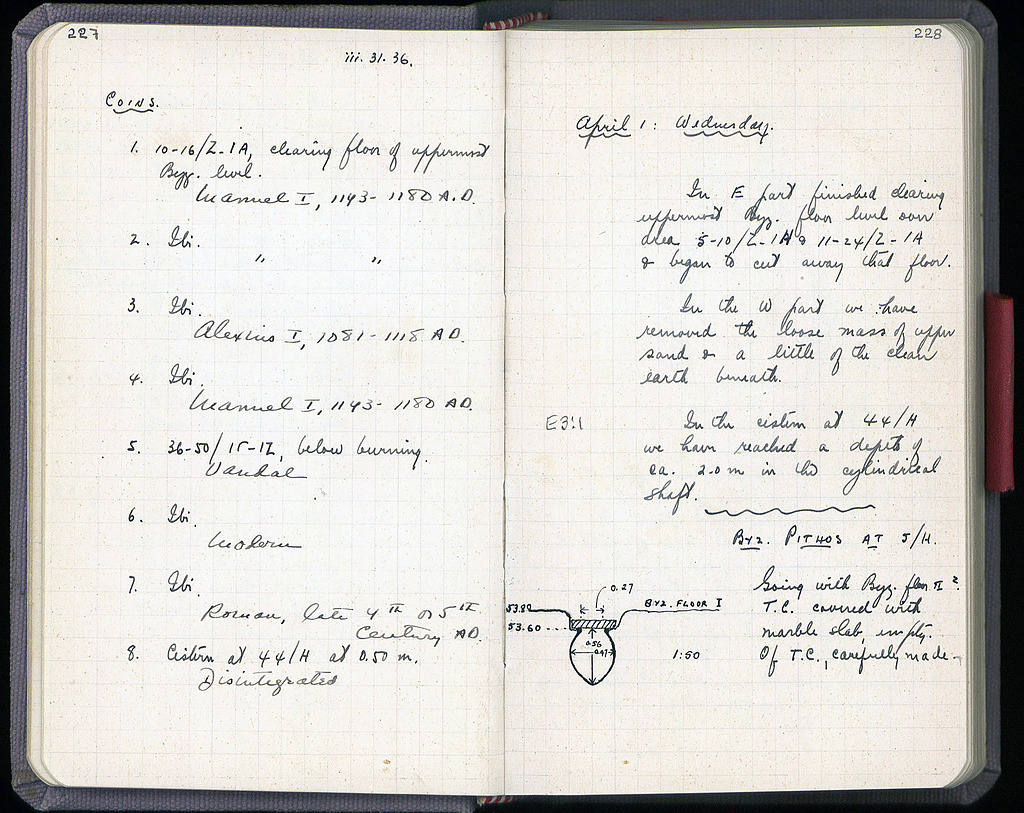 227
iii. 31. 36.
Coins.
1. 10-16/Z-1A, clearing floor of uppermost
Byz. level.
Manuel I, 1143-1180 A.D.
2. Ibi.
" "
3. Ibi.
Alexius I, 1081-1118 AD.
4. Ibi.
Manuel I, 1143-1180 AD.
5. 36-50/ 15-17, below burning.
Vandal
6. Ibi.
Modern
7. Ibi.
Roman, late 4th or 5th
Century AD.
8. Cistern at 44/H at 0.50 m.
Disintegrated
228
April 1: Wednesday.
In E part finished clearing
uppermost Byz. floor level over
area 5-10/Z-1A & 11-24/Z-1A
& began to cut away that floor.
In the W part we have
removed the loose mass of upper
sand & a little of the clean
earth beneath.
E3:1
In the cistern at 44/H
we have reached a depth of
ca. 2.0 m in the cylindrical
shaft.
Byz. Pithos at 5/H.
Going with Byz. floor II?
T.C. covered with
marble slab, empty.
Of T.C., carefully made-
0.27
53.82
Byz. Floor I
53.60
0.56
0.47
1:50